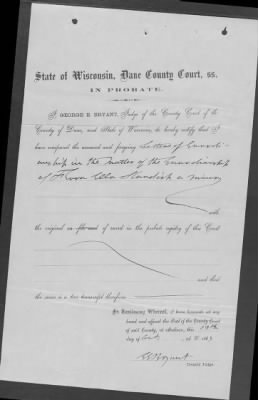 State of Wisconsin, Dane County Court, ss.
IN PROBATE.
I GEORGE E. BRYANT, Judge of the County Court of the
County of Dane, and State of Wisconsin, do hereby certify that I
have compared the annexed and foregoing Letters of Guardi-
anship in the Matter of the Guardianship
of Flora Ella Standish a minor
with
the original as of record in the probate registry of this Court
and that
the same is a true transcript therefrom
In Testimony Whereof, I have hereunto set my
hand and affixed the Seal of the County Court
of said County, at Madison, this
day of
County Judge.